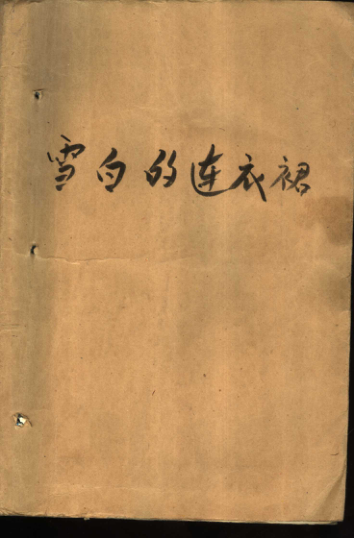 雪白的连衣裙